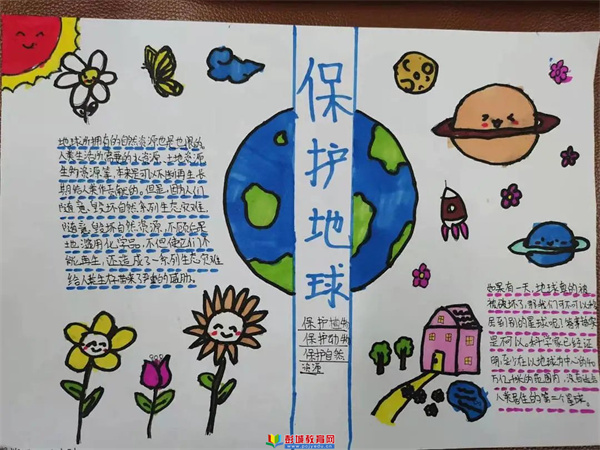 保护地球
地球所拥有的自然资源也是有限的
人类生活所需要的水资源、土地资源
生物资源等,本来是可以不断再生,长
期给人类作贡献的。但是,因为人们
随意毁坏自然系列生态灾难,
随意毁坏自然资源,不顾后果
地滥用化学品,不但使它们不
能再生,还造成了一系列生态灾难
给人类生存带来了严重的威胁。
保护植物
保护动物
保护自然
资源
如果有一天,地球真的被
被破坏了,那我们可不可以移
居到别的星球呢?答案
是不可以。科学家已经证
明,至少在以地球为中心的40
万亿km的范围内,没有适合
人类居住的第二个星球。
彭城教育网
pcjyedu.cn